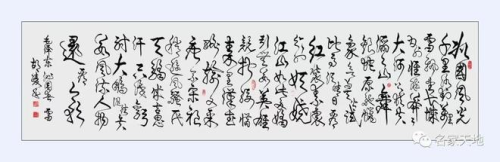 北国风光
千里冰封万里
雪飘望长城
内外惟余莽莽
大河上下顿失
滔滔山舞
银蛇原驰蜡
象欲与天公
试比高须晴日看
红装素裹分外妖娆
江山如此多娇
引无数英雄
竞折腰惜
秦皇汉武
略输文采
唐宗宋祖
稍逊风骚一代
天骄成吉思
汗只识弯弓
射大雕俱往矣
数风流人物
还看今朝
毛泽东 沁园春 雪
名家天地